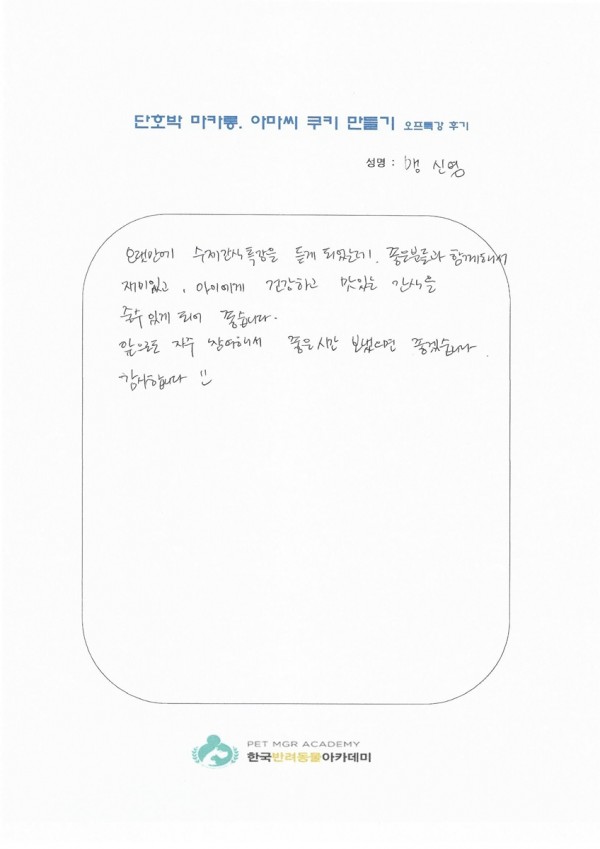 단호박 마카롱. 아마씨 쿠키 만들기 오프특강 후기
성명 : 맹 신영
오랜만에 수제간식특강을 듣게 되었는데. 좋은분들과 함께해서
재미있고, 아이에게 건강하고 맛있는 간식을
줄수 있게 되어 좋습니다.
앞으로도 자주 참여해서 좋은시간 보냈으면 좋겠습니다.
감사합니다 :)
PET MGR ACADEMY
한국반려동물아카데미